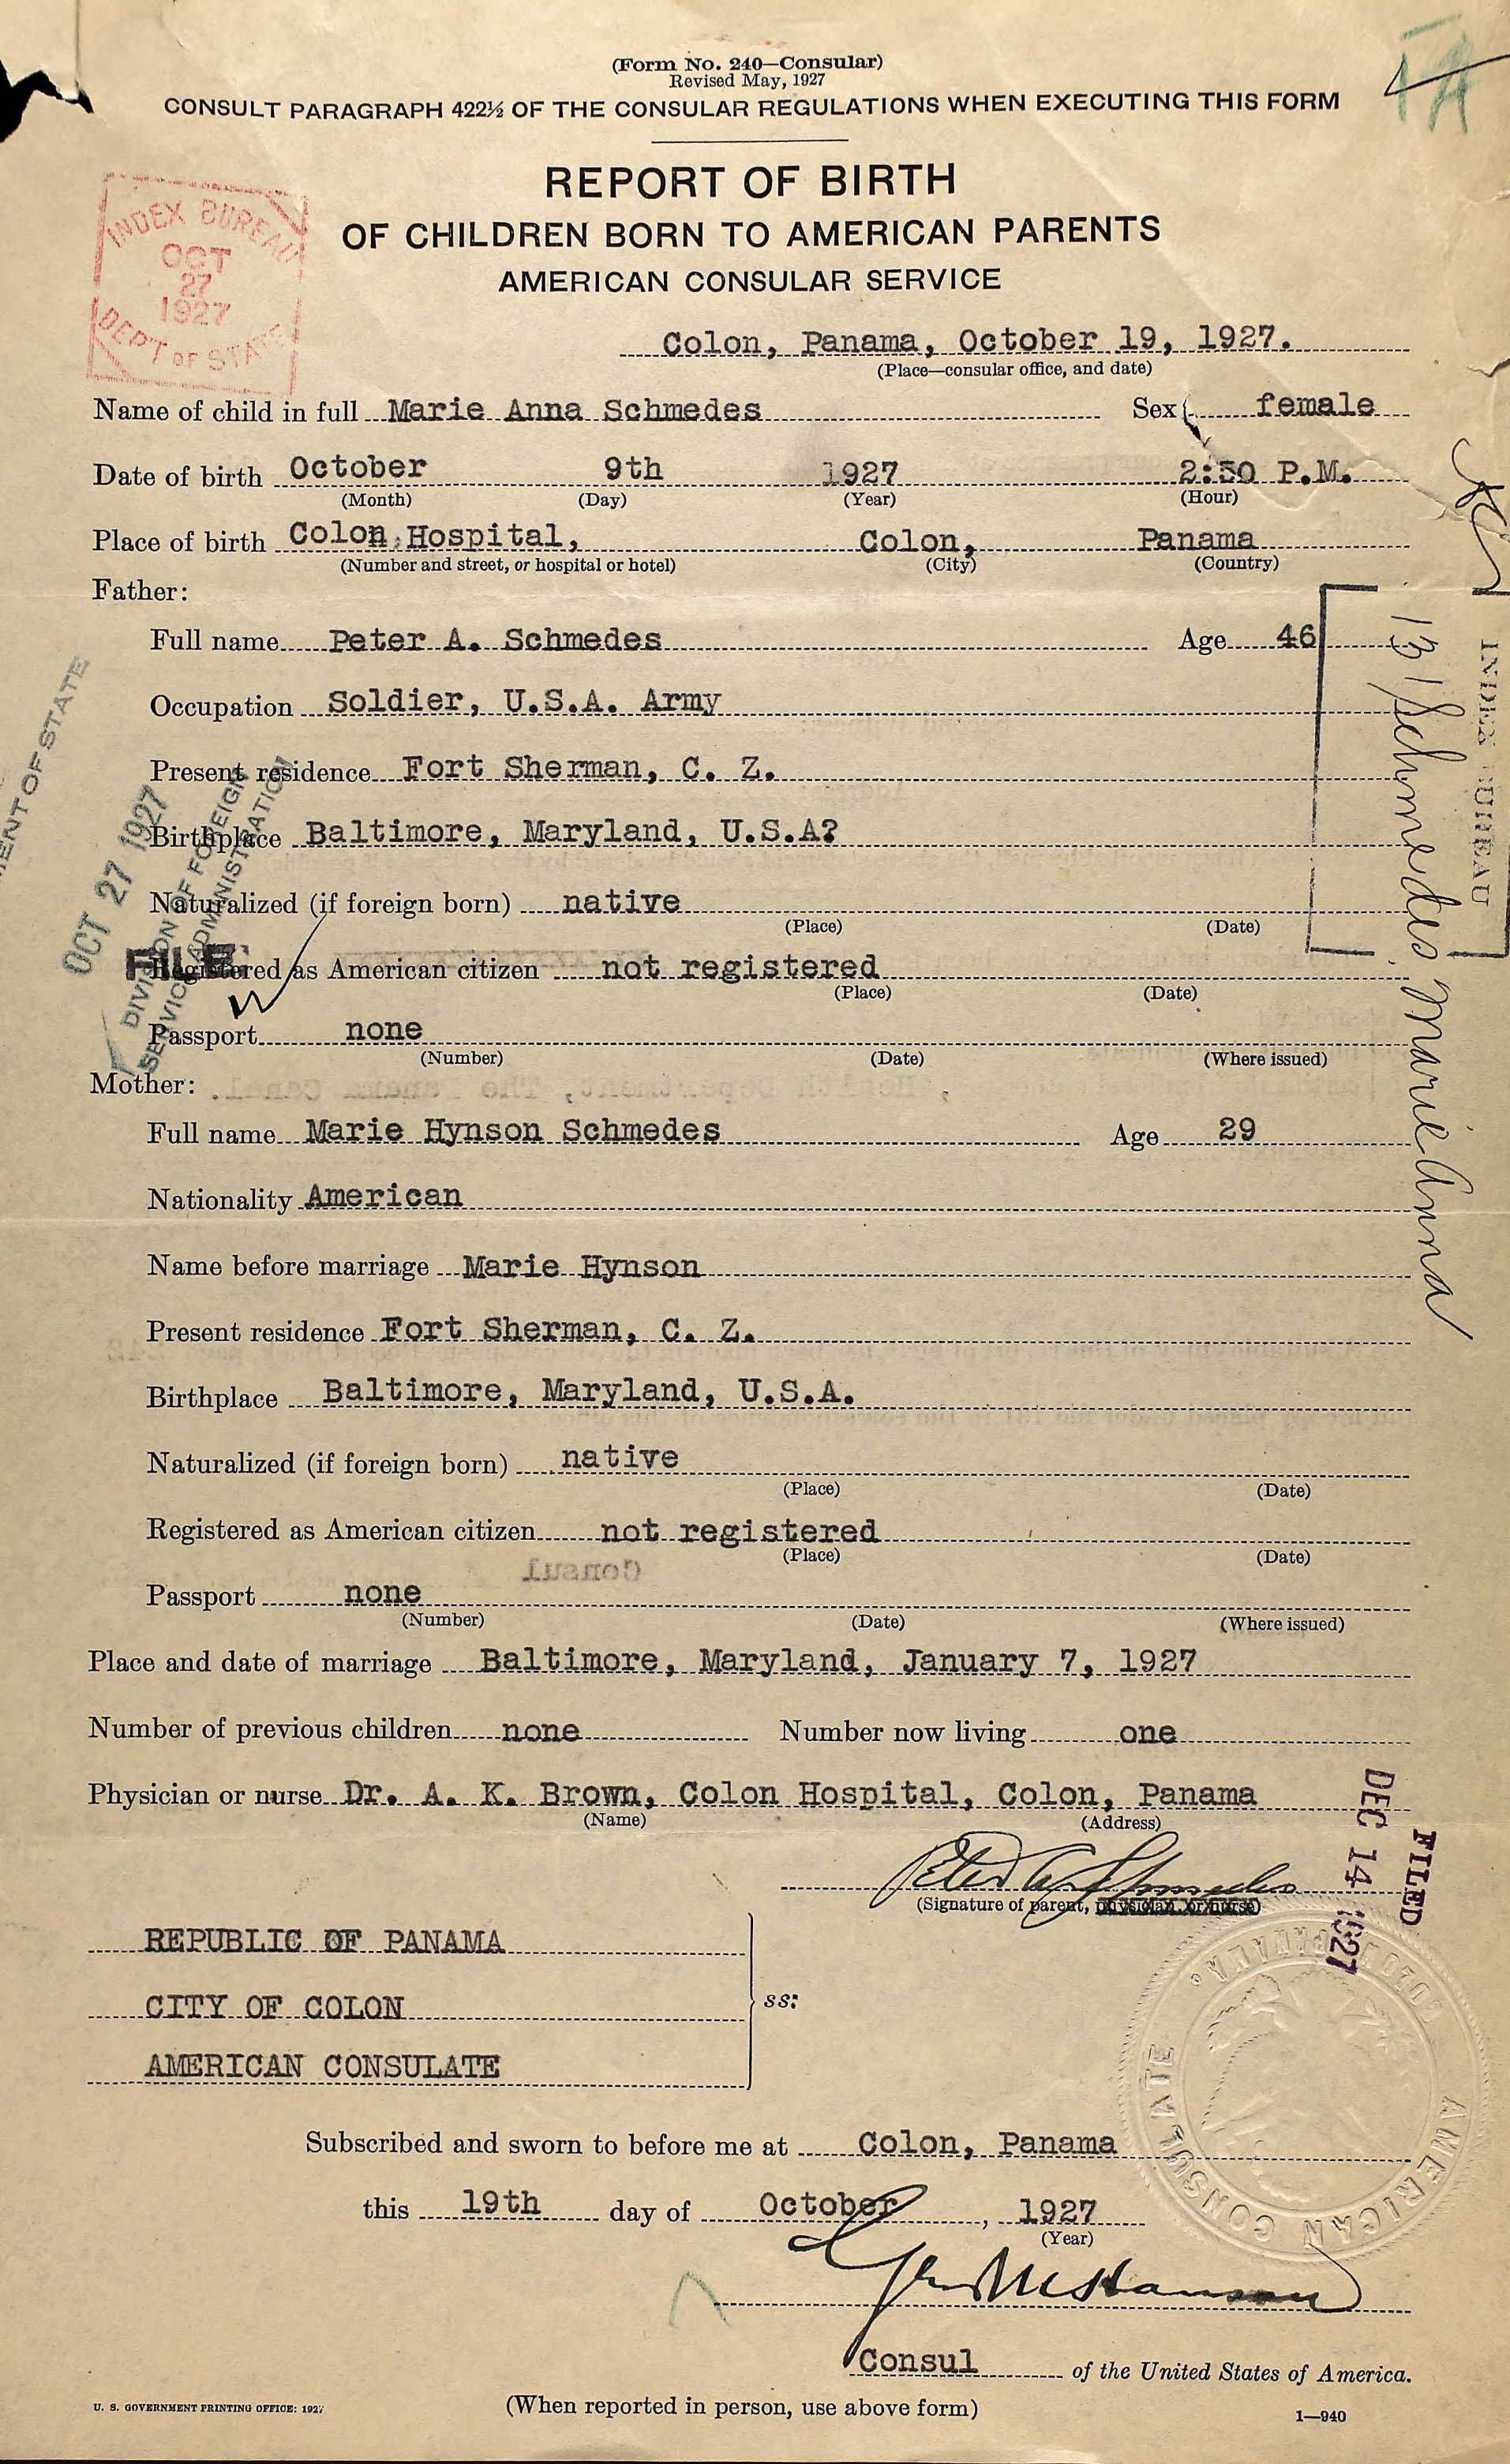 (Form No. 240—Consular)
Revised May, 1927
CONSULT PARAGRAPH 422½ OF THE CONSULAR REGULATIONS WHEN EXECUTING THIS FORM
REPORT OF BIRTH
OF CHILDREN BORN TO AMERICAN PARENTS
AMERICAN CONSULAR SERVICE
INDEX BUREAU
OCT
27
1927
DEP'T OF STATE
Colon, Panama, October 19, 1927.
(Place—consular office, and date)
Name of child in full Marie Anna Schmedes Sex female
Date of birth October 9th 1927 2:50 P.M.
(Month) (Day) (Year) (Hour)
Place of birth Colon Hospital, Colon, Panama
(Number and street, or hospital or hotel) (City) (Country)
Father:
Full name Peter A. Schmedes Age 46
Occupation Soldier, U.S.A. Army
Present residence Fort Sherman, C. Z.
Birthplace Baltimore, Maryland, U.S.A?
Naturalized (if foreign born) native
(Place) (Date)
Registered as American citizen not registered
(Place) (Date)
Passport none
(Number) (Date) (Where issued)
MENT OF STATE
OCT 27 1927
DIVISION OF FOREIGN
SERVICE ADMINISTRATION
FILE
131 Schmedes, Marie Anna
INDEX BUREAU
Mother:
Full name Marie Hynson Schmedes Age 29
Nationality American
Name before marriage Marie Hynson
Present residence Fort Sherman, C. Z.
Birthplace Baltimore, Maryland, U.S.A.
Naturalized (if foreign born) native
(Place) (Date)
Registered as American citizen not registered
(Place) (Date)
Passport none
(Number) (Date) (Where issued)
Place and date of marriage Baltimore, Maryland, January 7, 1927
Number of previous children none Number now living one
Physician or nurse Dr. A. K. Brown, Colon Hospital, Colon, Panama
(Name) (Address)
FILED
DEC 14 1927
Peter A. Schmedes
(Signature of parent, physician or nurse)
REPUBLIC OF PANAMA
CITY OF COLON
AMERICAN CONSULATE
ss:
AMERICAN CONSULATE
COLON, PANAMA.
Subscribed and sworn to before me at Colon, Panama
this 19th day of October, 1927
(Year)
Consul of the United States of America.
U. S. GOVERNMENT PRINTING OFFICE: 1927
(When reported in person, use above form)
1—940